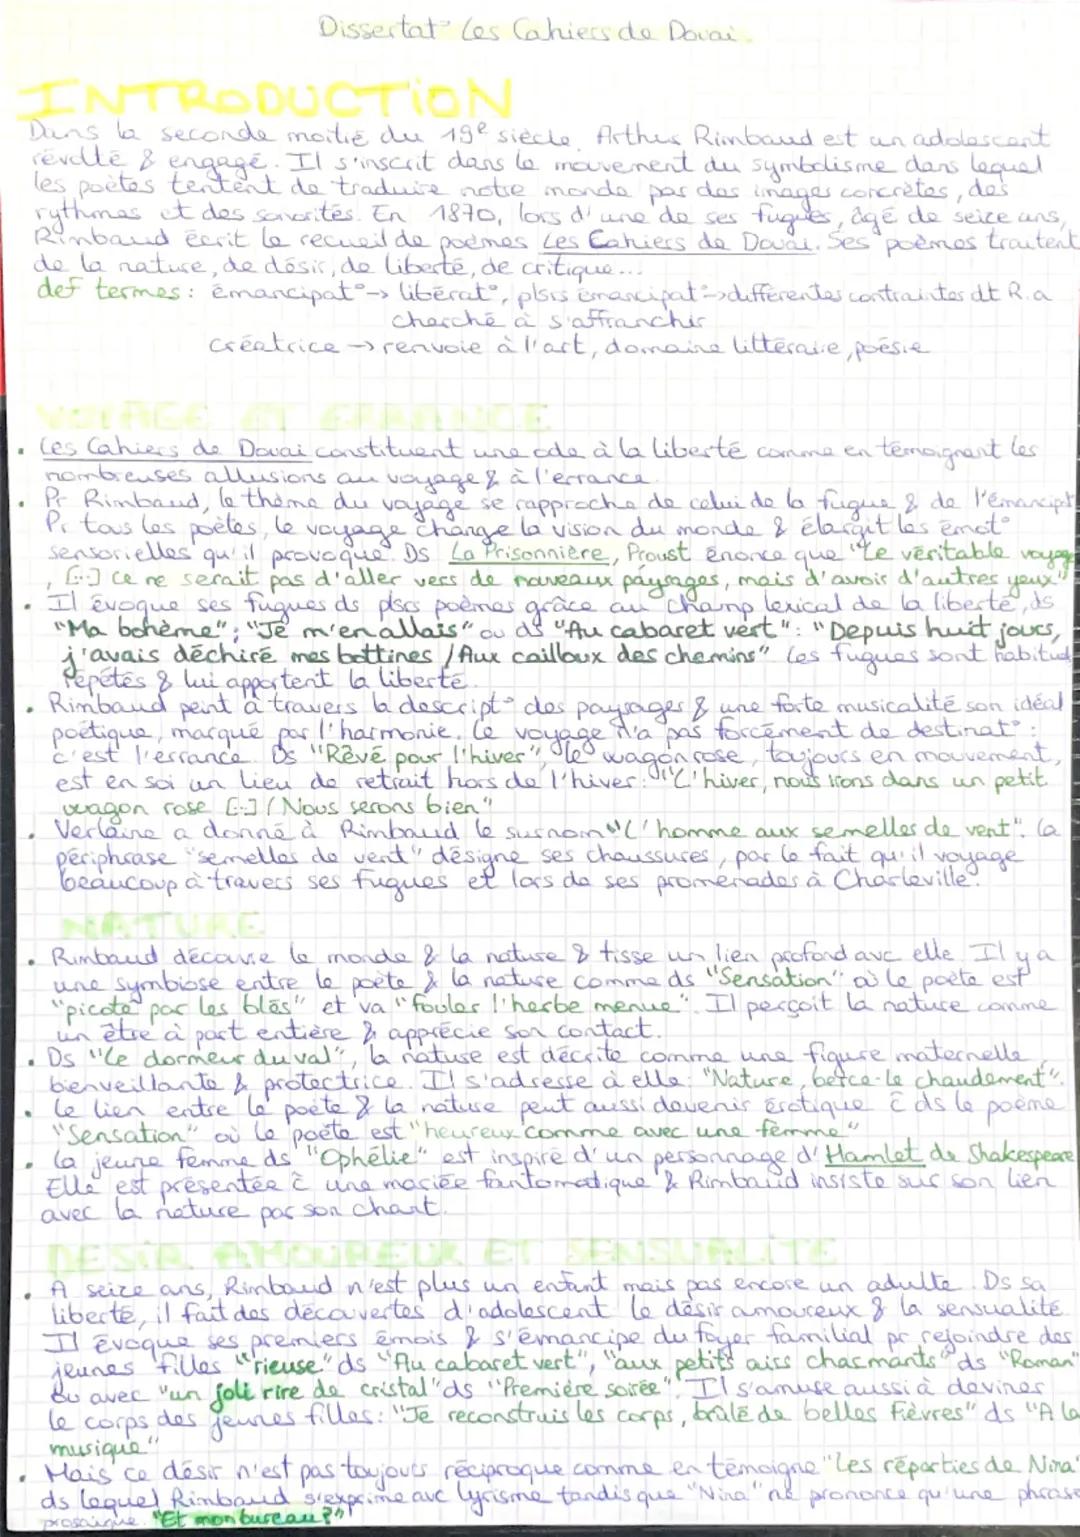 Dissertat° Les Cahiers de Douai.
INTRODUCTION
Dans la seconde moitié du 19e siècle, Arthur Rimbaud est un adolescent
révolté & engagé. Il s'inscrit dans le mouvement du symbolisme dans lequel
les poètes tentent de traduire notre monde par des images concrètes, des
rythmes et des sonorités. En 1870, lors d'une de ses fugues, âgé de seize ans,
Rimbaud écrit le recueil de poèmes Les Cahiers de Douai. Ses poèmes traitent
de la nature, de désir, de liberté, de critique...
def termes : émancipat° → libérat°, plsrs émancipat° → différentes contraintes dt R. a
cherché à s'affranchir
créatrice → renvoie à l'art, domaine littéraire, poésie
VOYAGE ET ERRANCE
• Les Cahiers de Douai constituent une ode à la liberté comme en témoignent les
nombreuses allusions au voyage & à l'errance.
• Pr Rimbaud, le thème du voyage se rapproche de celui de la fugue & de l'émancipt
Pr tous les poètes, le voyage change la vision du monde & élargit les émot°
sensorielles qu'il provoque. Ds La Prisonnière, Proust énonce que "Le véritable voyage
, [...] ce ne serait pas d'aller vers de nouveaux paysages, mais d'avoir d'autres yeux"
• Il évoque ses fugues ds plsrs poèmes grâce au champ lexical de la liberté, ds
"Ma bohème" ; "Je m'en allais" ou ds "Au cabaret vert" : "Depuis huit jours,
j'avais déchiré mes bottines / Aux cailloux des chemins" Les fugues sont habitud
répétés & lui apportent la liberté.
• Rimbaud peint à travers la descript° des paysages & une forte musicalité son idéal
poétique, marqué par l'harmonie. Le voyage n'a pas forcément de destinat° :
c'est l'errance. Ds "Rêvé pour l'hiver", le wagon rose, toujours en mouvement,
est en soi un lieu de retrait hors de l'hiver : "L'hiver, nous irons dans un petit
wagon rose [...] / Nous serons bien"
• Verlaine a donné à Rimbaud le surnom "L'homme aux semelles de vent". La
périphrase "semelles de vent" désigne ses chaussures, par le fait qu'il voyage
beaucoup à travers ses fugues et lors de ses promenades à Charleville.
NATURE
• Rimbaud découvre le monde & la nature & tisse un lien profond avc elle. Il y a
une symbiose entre le poète & la nature comme ds "Sensation" où le poète est
"picoté par les blés" et va "fouler l'herbe menue". Il perçoit la nature comme
un être à part entière & apprécie son contact.
• Ds "Le dormeur du val", la nature est décrite comme une figure maternelle,
bienveillante & protectrice. Il s'adresse à elle : "Nature, berce-le chaudement".
• Le lien entre le poète & la nature peut aussi devenir érotique c̄ ds le poème
"Sensation" où le poète est "heureux comme avec une femme"
• La jeune femme ds "Ophélie" est inspiré d'un personnage d'Hamlet de Shakespeare
Elle est présentée c̄ une mariée fantomatique & Rimbaud insiste sur son lien
avec la nature par son chant.
DESIR AMOUREUX ET SENSUALITE
• A seize ans, Rimbaud n'est plus un enfant mais pas encore un adulte. Ds sa
liberté, il fait des découvertes d'adolescent le désir amoureux & la sensualité.
Il évoque ses premiers émois & s'émancipe du foyer familial pr rejoindre des
jeunes filles "rieuse" ds "Au cabaret vert", "aux petits airs charmants" ds "Roman"
ou avec "un joli rire de cristal" ds "Première soirée". Il s'amuse aussi à deviner
le corps des jeunes filles : "Je reconstruis les corps, brûlé de belles fièvres" ds "A la
musique"
• Mais ce désir n'est pas toujours réciproque comme en témoigne "Les réparties de Nina"
ds lequel Rimbaud s'exprime avc lyrisme tandis que "Nina" ne prononce qu'une phrase
prosaïque. "Et mon bureau ?"